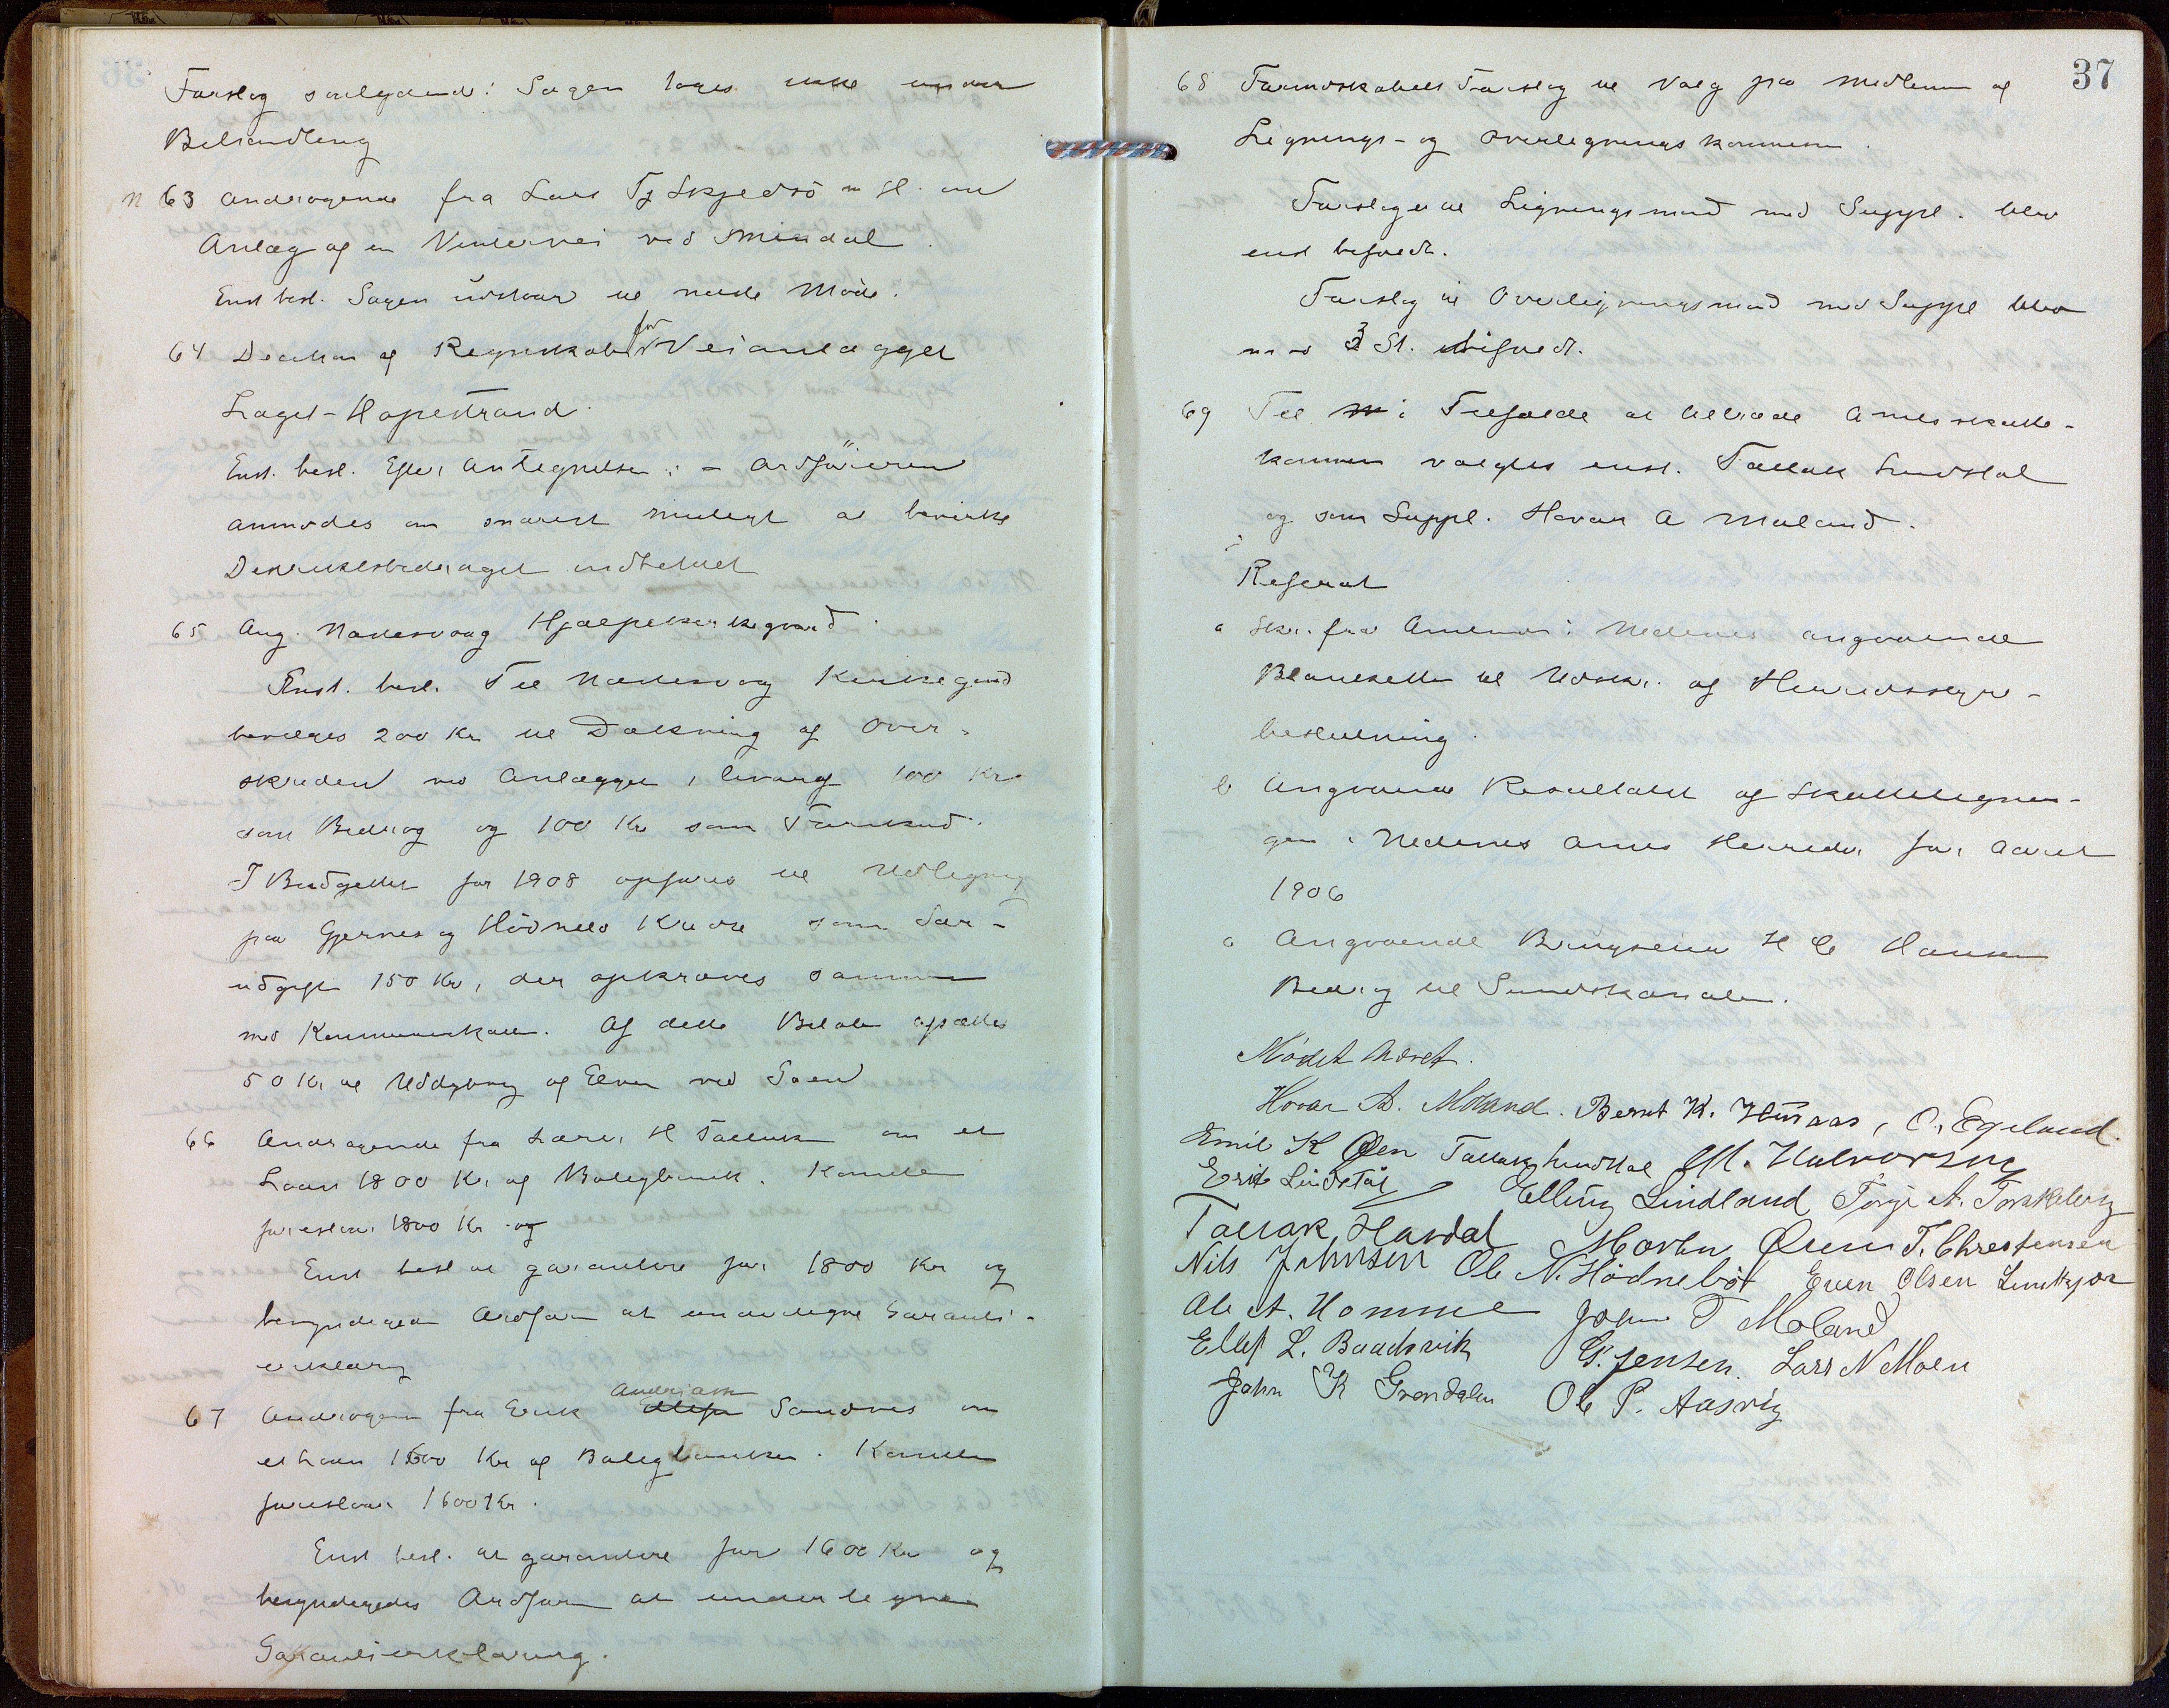 Forslag saalydende: Sagen tages ikke under
Behandling
N 63 Andragende fra Lars Tj Skjedsö m fl. om
Anlæg af en Vintervei ved Smindal.
Enst besl. Sagen udstaar til neste Möde.
64 Decision af Regnskab for Veianlægget
Laget-Hopestrand.
Enst. besl. Efter Antegnelsen: - Ordföreren
anmodes om snarest muligt at bevirke
Distriktsbidraget indbetalt
65 Ang. Nævesvaag Hjælpekirkegaard.
Enst. besl. Til Nævesvaag Kirkegaard
bevilges 200 Kr til Dækning af Over-
skriden ved Anlægget, hvoraf 100 Kr
som Bidrag og 100 Kr som Forskud.
I Budgettet for 1908 opføres til Udligning
paa Gjernes og Hödnebö Kreds som Sær-
udgift 150 Kr, der opkræves sammen
med Kommuneskatten. Af dette Belöb afsættes
50 Kr til Uddybning af Elven ved Söen
66 Andragende fra Lærer H Tallaksen om et
Laan 1800 Kr af Boligbank. Komiteen
foreslaar 1800 Kr og
Enst besl at garantere for 1800 Kr og
bemyndiges Ordfør at undertegne Garanti-
erklæring
67 Andragende fra Erik Ellefsen Andreassen Sandnes om
et Laan 1600 Kr af Boligbanken. Komiteen
foreslaar 1600 Kr.
Enst besl. at garantere for 1600 Kr og
bemyndigedes Ordfør at undertegne
Garantierklæring.
37
68 Formandskabets Forslag til Valg paa Medlemmer af
Lignings- og Overlignings kommisn.
Forslaget til Ligningsmænd med Suppl. blev
enst bifaldt.
Forslag til Overligningsmænd med Suppl blev
mod 3 St. bifaldt.
69 Til i Tilfælde at tiltræde Amtsskatte-
kommisn valgtes enst. Tallak Lindstøl
og som Suppl. Hovar A Moland.
Referat
a Skr. fra Amtmn i Nedenes angaaende
Blanketter til Udskr. af Herredsstyre-
beslutning.
b Angaaende Resultatet af Skatteligning-
gen i Nedenes Amts Herreder for Aaret
1906
c Angaaende Brugseier H C Hansen
Bidrag til Sundskanalen.
Mödet hævet.
Hovar A. Moland. Bernt K. Humaas, O. Egeland.
Emil K Øen Tallak Lindstøl M. Halvorsen
Erik Lindstøl Elling Lindland Terje A. Torskeberg
Tallak Havdal Martin Øuen T. Christensen
Nils Johnsen Ole N. Hödnebö Even Olsen Lindkjær
Ole A. Homme John T Moland
Ellef L. Baadsvik G. Jensen. Lars N Moen
John K Grendalen Ole P. Aasvig